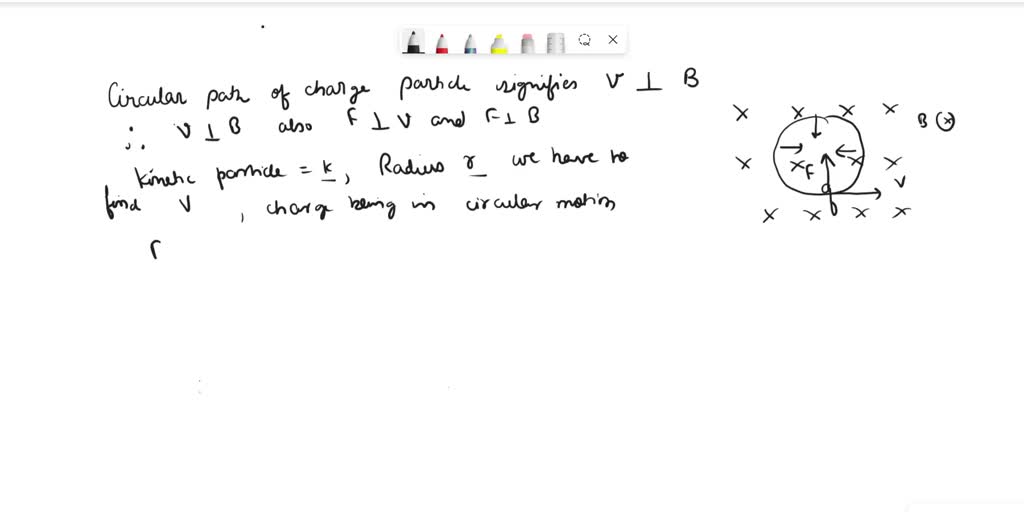 Circular path of charge particle signifies V ⊥ B
∴ V ⊥ B also F ⊥ V and F ⊥ B
Kinetic particle = k, Radius r we have to
find V, charge being in circular motion
Γ
x x x x B ⊗
x x F x x V
x x x x